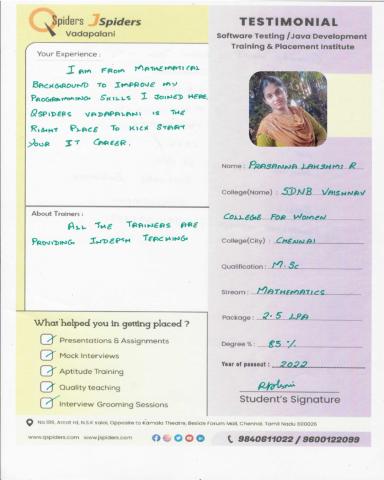 QSpiders JSpiders
Vadapalani
TESTIMONIAL
Software Testing / Java Development
Training & Placement Institute
Your Experience :
I AM FROM MATHEMATICAL
BACKGROUND TO IMPROVE MY
PROGRAMMING SKILLS I JOINED HERE.
QSPIDERS VADAPALANI IS THE
RIGHT PLACE TO KICK START
YOUR IT CAREER.
About Trainers :
ALL THE TRAINERS ARE
PROVIDING INDEPTH TEACHING
Name : PRASANNA LAKSHMI R
College(Name) : SDNB VAISHNAV
COLLEGE FOR WOMEN
College(City) : CHENNAI
Qualification : M.Sc
Stream : MATHEMATICS
Package : 2.5 LPA
Degree % : 85 %
Year of passout : 2022
Student's Signature
What helped you in getting placed ?
Presentations & Assignments
Mock Interviews
Aptitude Training
Quality teaching
Interview Grooming Sessions
No.189, Arcot rd, N.S.K salai, Opposite to Kamala Theatre, Beside Forum Mall, Chennai, Tamil Nadu 600026
www.qspiders.com www.jspiders.com
9840611022 / 9600122099